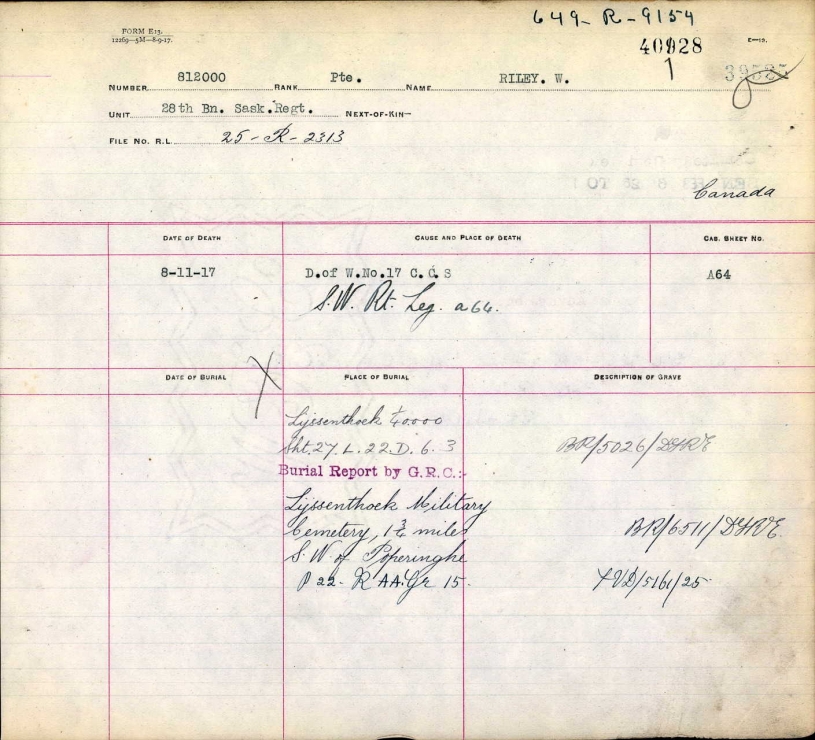 649-R-9154
FORM E13.
12269—5M—8-9-17.
40928
E—13.
1
NUMBER 812000 RANK Pte. NAME RILEY. W.
UNIT 28th Bn. Sask.Regt. NEXT-OF-KIN—
FILE NO. R.L. 25-R-2313
Canada
DATE OF DEATH CAUSE AND PLACE OF DEATH CAS. SHEET NO.
8-11-17 D.of W.No.17 C.C.S A64
S.W. Rt. Leg. a64.
DATE OF BURIAL X PLACE OF BURIAL DESCRIPTION OF GRAVE
Lijssenthoek 1/40.000
Sht.27.L.22.D.6.3 BR/5026/DGRE
Burial Report by G.R.C.:-
Lijssenthoek Military
Cemetery, 1 3/4 miles BR/6511/DGRE
S.W. of Poperinghe
P 22. R AA. Gr 15.